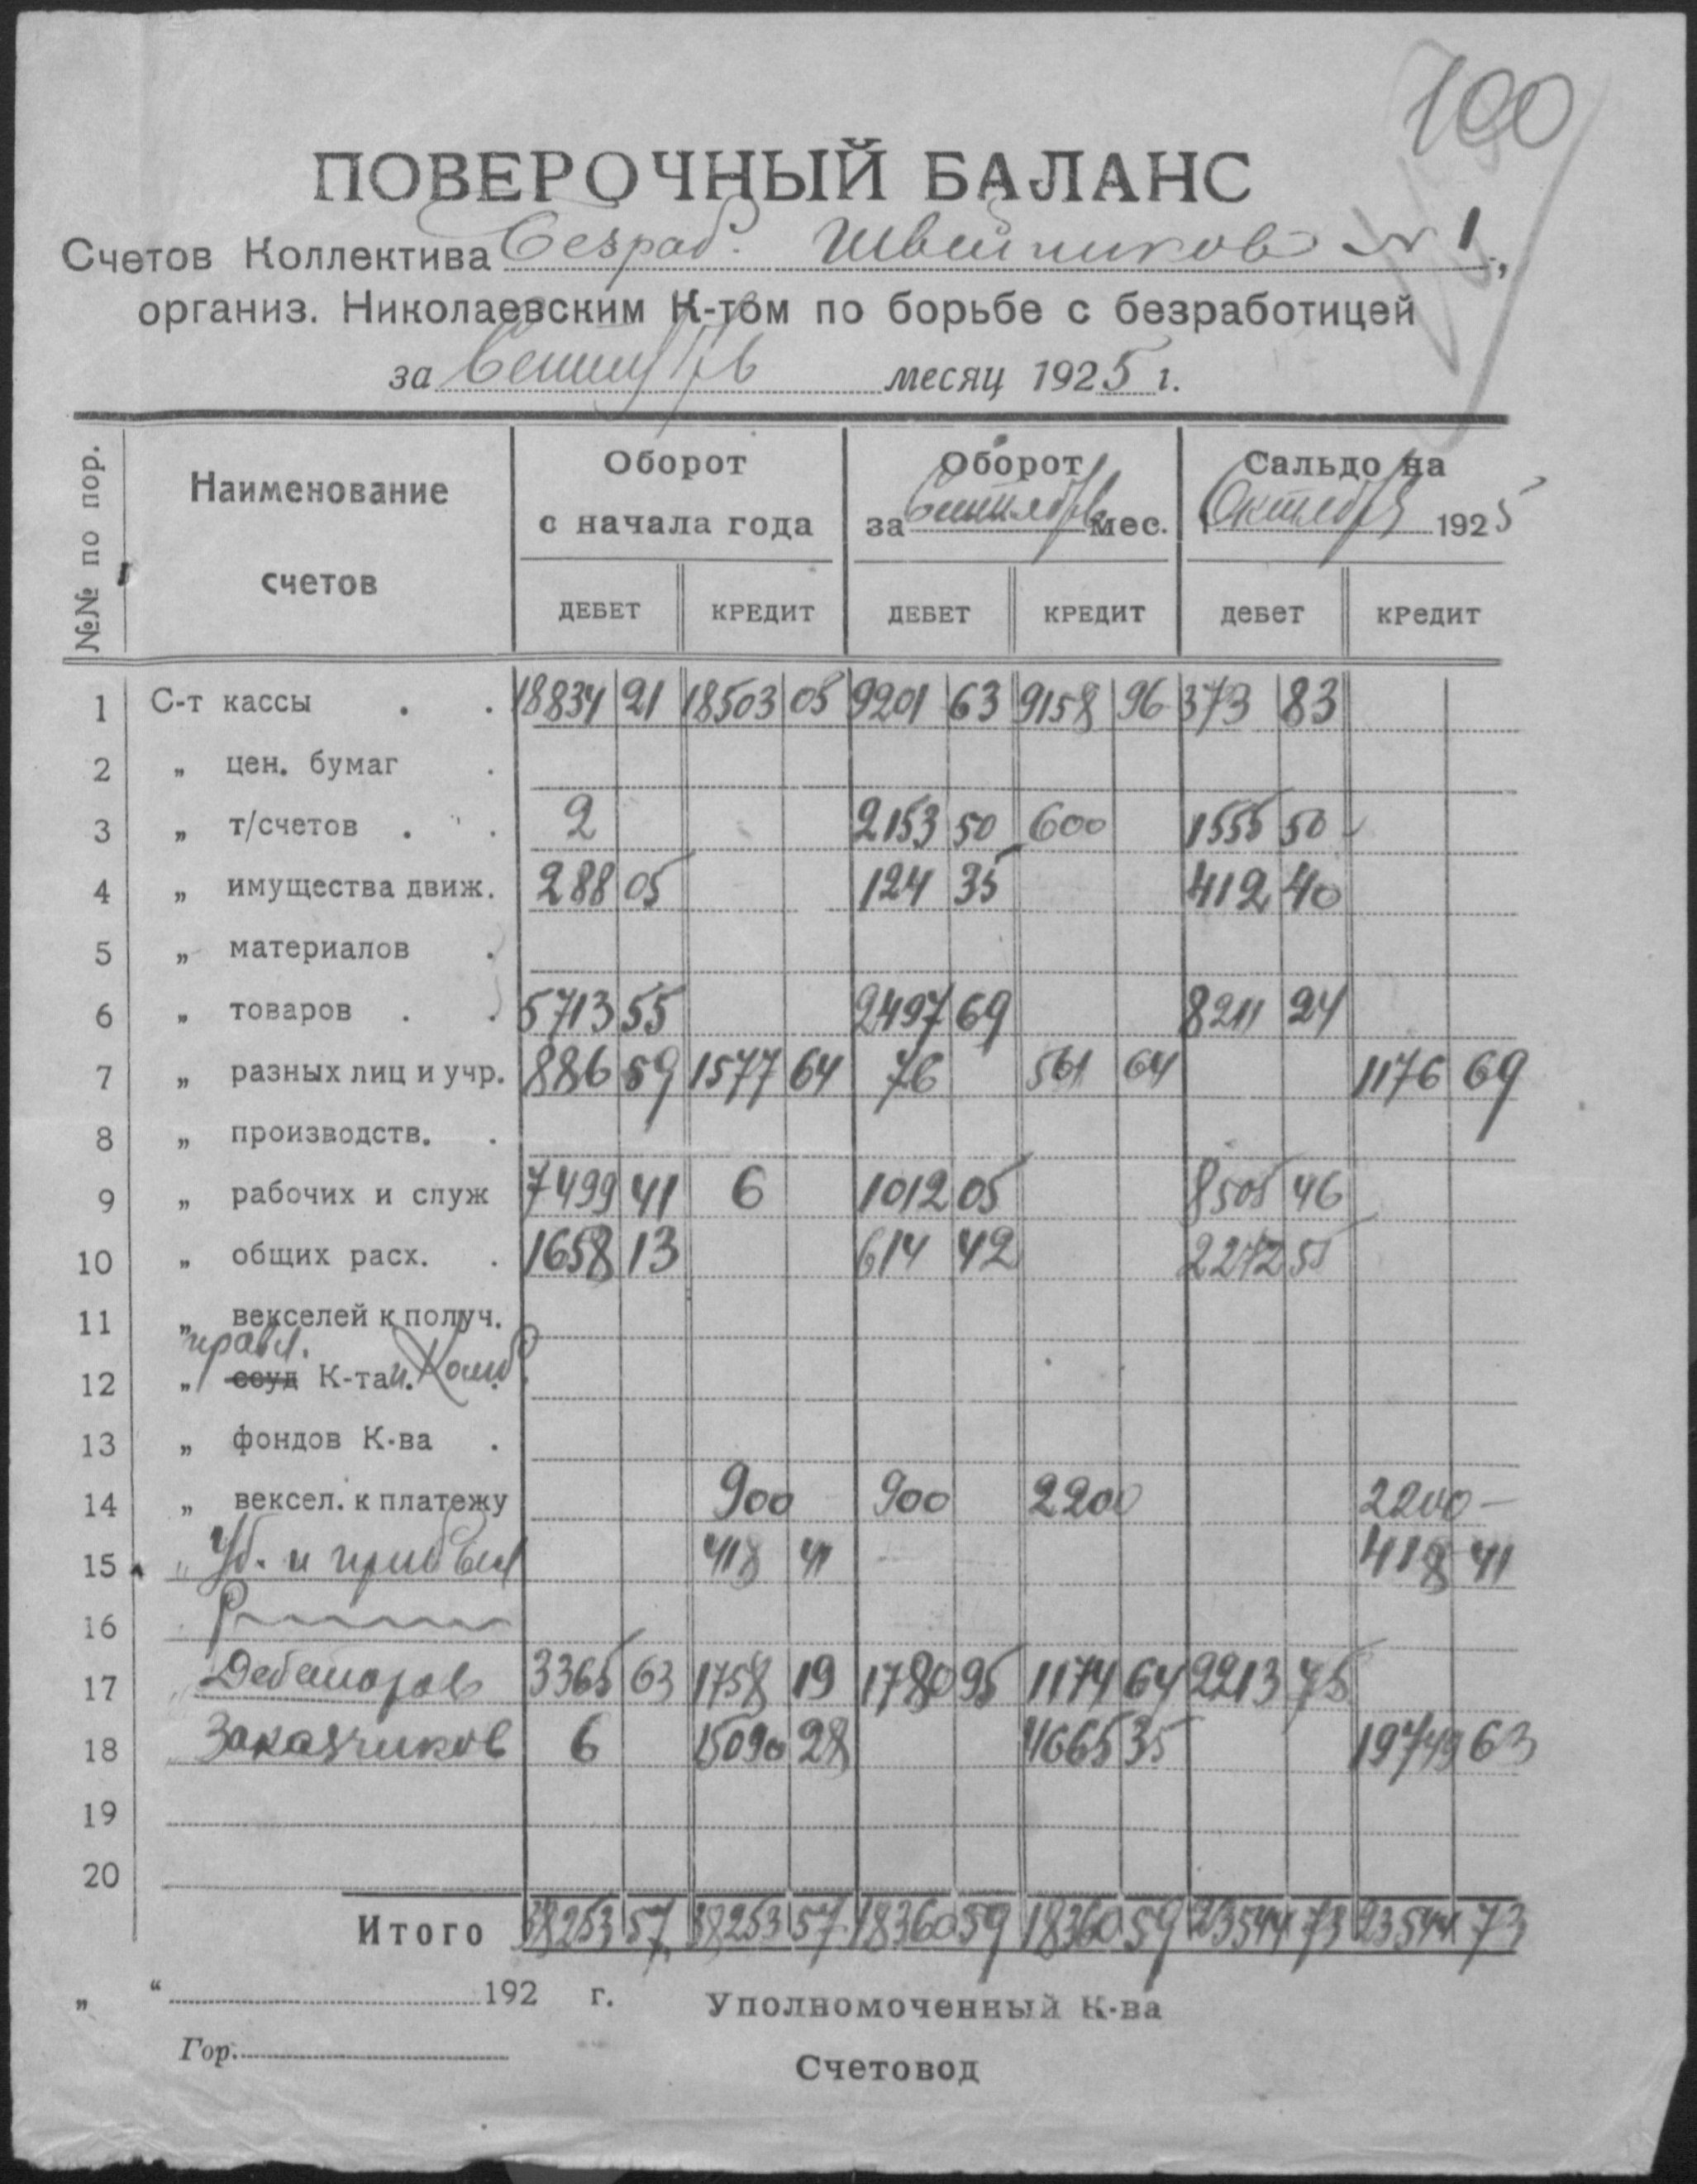 100
ПОВЕРОЧНЫЙ БАЛАНС
Счетов Коллектива Безраб. Швейников № 1,
организ. Николаевским К-том по борьбе с безработицей
за Сентябрь месяц 1925 г.
№№ по пор. Наименование счетов Оборот с начала года Оборот за Сентябрь мес. Сальдо на 1 Октября 1925
ДЕБЕТ КРЕДИТ ДЕБЕТ КРЕДИТ дебет кредит
1 С-т кассы . . 18834 21 18503 05 9201 63 9158 96 373 83
2 „ цен. бумаг .
3 „ т/счетов . . 2 2153 50 600 1555 50
4 „ имущества движ. 288 05 124 35 412 40
5 „ материалов .
6 „ товаров . . 5713 55 2497 69 8211 24
7 „ разных лиц и учр. 886 59 1577 64 76 561 64 1176 69
8 „ производств. .
9 „ рабочих и служ 7499 41 6 1012 05 8505 46
10 „ общих расх. . 1658 13 614 42 2272 55
11 „ векселей к получ.
правл.
12 „ ссуд К-та и.
13 „ фондов К-ва .
14 „ вексел. к платежу 900 900 2200 2200 —
15 „ Уб. и прибыл 418 41 418 41
16
17 „ Дебаторов 3365 63 1758 19 1780 95 1174 64 2213 75
18 „ Заказчиков 6 15090 28 4665 35 19749 63
19
20
Итого 38253 57 38253 57 18360 59 18360 59 23544 73 23544 73
„ “ 192 г. Уполномоченный К-ва
Гор.
Счетовод